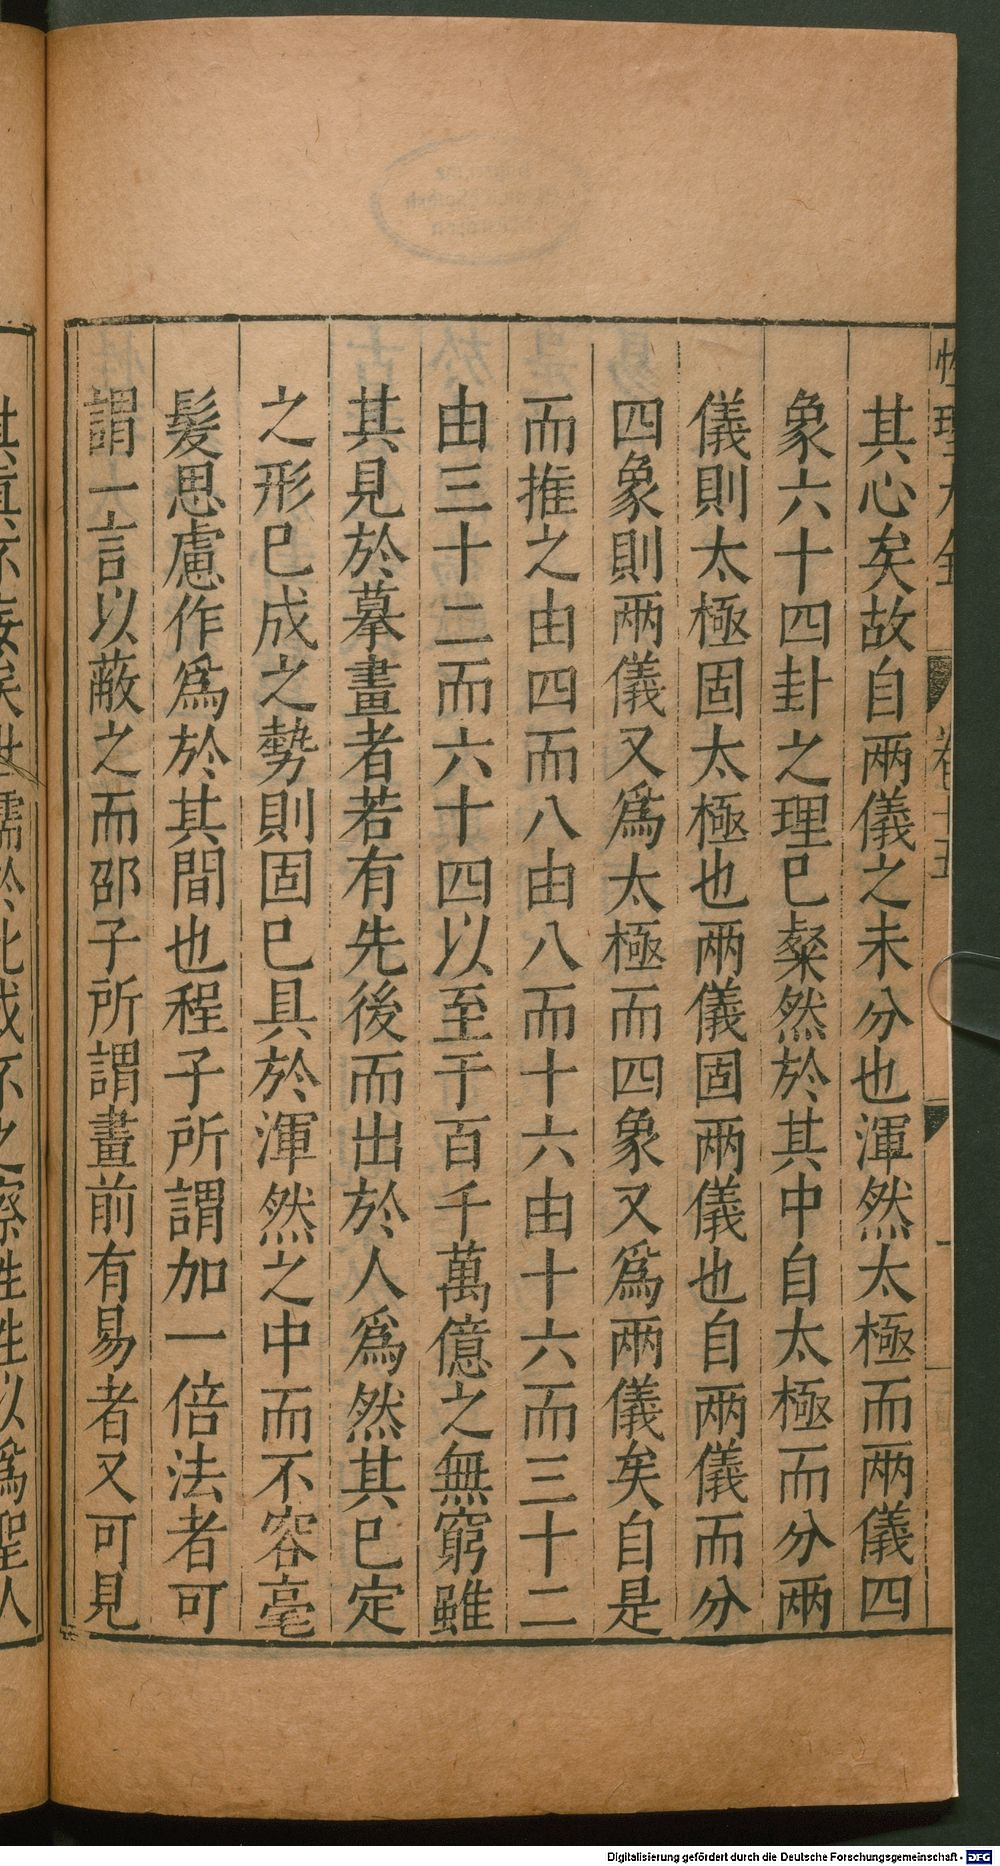 性理大全 卷十五
其心矣故自兩儀之未分也渾然太極而兩儀四
象六十四卦之理已粲然於其中自太極而分兩
儀則太極固太極也兩儀固兩儀也自兩儀而分
四象則兩儀又爲太極而四象又爲兩儀矣自是
而推之由四而八由八而十六由十六而三十二
由三十二而六十四以至于百千萬億之無窮雖
其見於摹畫者若有先後而出於人爲然其已定
之形已成之勢則固已具於渾然之中而不容毫
髮思慮作爲於其間也程子所謂加一倍法者可
謂一言以蔽之而邵子所謂畫前有易者又可見
其眞不妄矣世儒於此或不之察往往以爲聖人
Digitalisierung gefördert durch die Deutsche Forschungsgemeinschaft - DFG